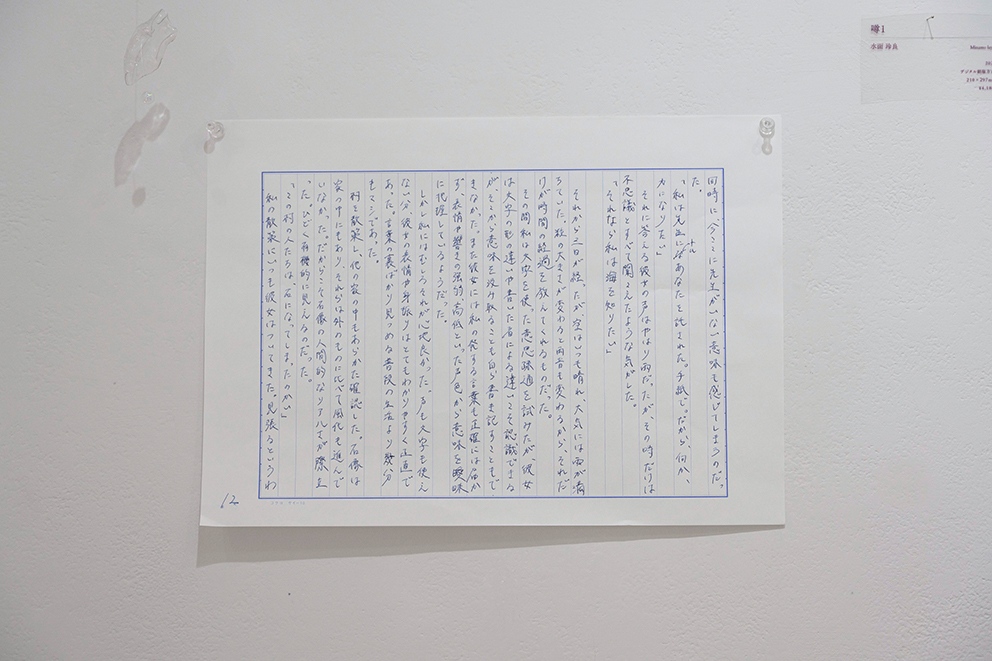 同時に、今ここに先生がいない意味も感じてしまうのだっ
た。
「私は先生にあなたを託された。手紙で。だから、何か、
力になりたい」
それに答える彼女の声はやはり雨だ。だが、その時だけは
不思議とすべて聞こえたような気がした。
「それなら私は海を知りたい」
それから三日が経ったが空はいつも晴れ、大気には雨が満
ちていた。粒の大きさが変わると雨音も変わるから、それだ
けが時間の経過を教えてくれるものだった。
その間私は文字を使った意思疎通を試みたが、彼女
は文字の形の違いや書いた者による違いこそ認識できる
が、そこから意味を汲み取ることも自ら書き記すこともで
きなかった。また彼女には私の発する言葉も正確には届か
ず、表情や響きの強弱高低といった声色から意味を曖昧
に把握しているようだった。
しかし私にはむしろそれが心地良かった。声も文字も使え
ない分彼女の表情や身振りはとてもわかりやすく正直で
あった。言葉の裏ばかり見つめる普段の生活より幾分
もマシであった。
村を散策し、他の家の中もあらかた確認した。石像は
家の中にもあり、それらは外のものに比べて風化も進んで
いなかった。だからこそ石像の人間的なリアルさが際立
った。ひどく有機的に見えるのだった。
「この村の人たちは、石になってしまったのかい」
私の散策にいつも彼女はついてきた。見張るというわ
12
噂1
水面 玲良
Minamo
デジタル
210×297